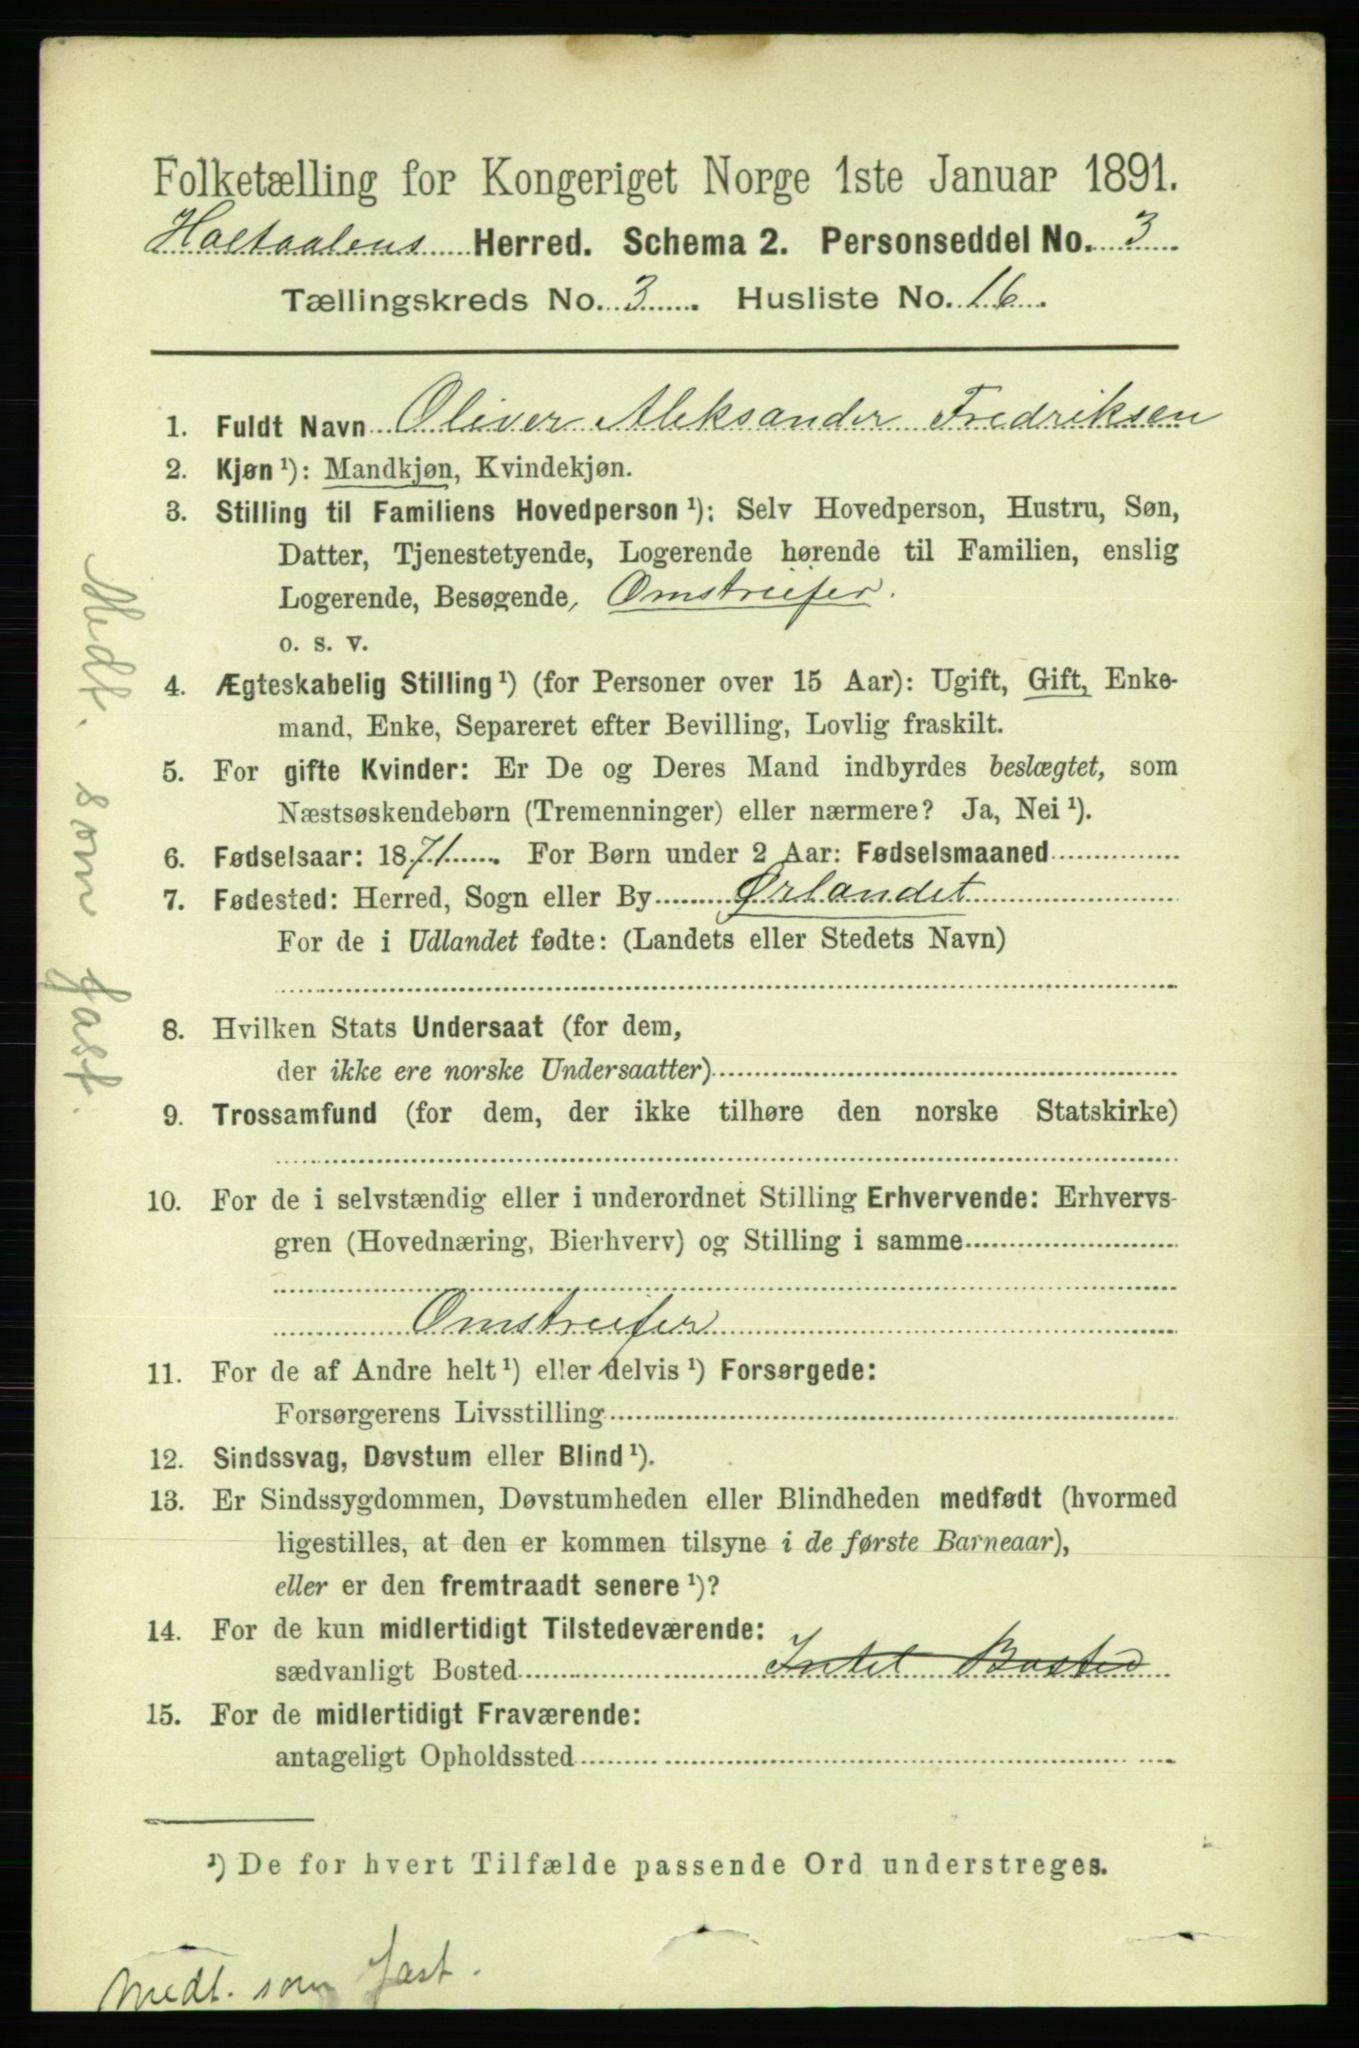 Folketælling for Kongeriget Norge 1ste Januar 1891.
Holtaalens Herred. Schema 2. Personseddel No. 3
Tællingskreds No. 3. Husliste No. 16.
1. Fuldt Navn Oliver Aleksander Fredriksen
2. Kjøn¹): Mandkjøn, Kvindekjøn.
3. Stilling til Familiens Hovedperson¹): Selv Hovedperson, Hustru, Søn,
Datter, Tjenestetyende, Logerende hørende til Familien, enslig
Logerende, Besøgende, Omstreifer.
o. s. v.
4. Ægteskabelig Stilling¹) (for Personer over 15 Aar): Ugift, Gift, Enke-
mand, Enke, Separeret efter Bevilling, Lovlig fraskilt.
5. For gifte Kvinder: Er De og Deres Mand indbyrdes beslægtet, som
Næstsøskendebørn (Tremenninger) eller nærmere? Ja, Nei¹).
6. Fødselsaar: 1871. For Børn under 2 Aar: Fødselsmaaned
7. Fødested: Herred, Sogn eller By Ørlandet
For de i Udlandet fødte: (Landets eller Stedets Navn)
8. Hvilken Stats Undersaat (for dem,
der ikke ere norske Undersaatter)
9. Trossamfund (for dem, der ikke tilhøre den norske Statskirke)
10. For de i selvstændig eller i underordnet Stilling Erhvervende: Erhvervs-
gren (Hovednæring, Bierhverv) og Stilling i samme
Omstreifer
11. For de af Andre helt¹) eller delvis¹) Forsørgede:
Forsørgerens Livsstilling
12. Sindssvag, Døvstum eller Blind¹).
13. Er Sindssygdommen, Døvstumheden eller Blindheden medfødt (hvormed
ligestilles, at den er kommen tilsyne i de første Barneaar),
eller er den fremtraadt senere¹)?
14. For de kun midlertidigt Tilstedeværende:
sædvanligt Bosted Intet Bosted
15. For de midlertidigt Fraværende:
antageligt Opholdssted
¹) De for hvert Tilfælde passende Ord understreges.
Medt. som fast.
Medt. som fast.